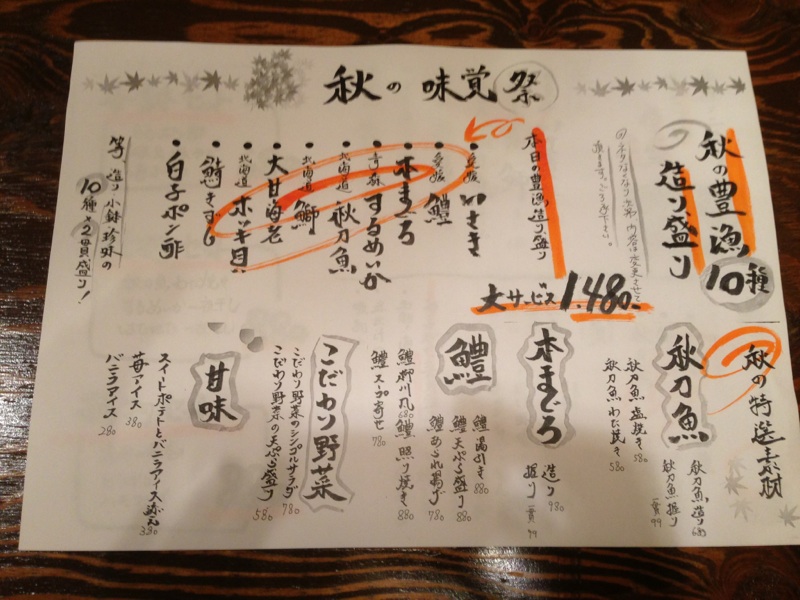 秋の味覚祭
秋の豊漁
10種
造り盛り
@ネタなくなり次第、内容は変更させて
頂きます。ご了承下さい。
大サービス 1.480.-
本日の豊漁造り盛り
・愛媛 いさき
・愛媛 鱧
・本まぐろ
・青森 するめいか
・北海道 秋刀魚
・北海道 鰤
・大甘海老
・北海道 ホッキ貝
・鯖きずし
・白子ポン酢
等、造り 小鉢 珍味の
10種×2貫盛り!
秋の特選素材
秋刀魚
秋刀魚 造り 680
秋刀魚 握り 一貫99
秋刀魚 塩焼き 580
秋刀魚 わた焼き 580
本まぐろ
造り 980
握り 一貫99
鱧
鱧 湯引き 880
鱧 天ぷら盛り 880
鱧 あられ揚げ 780
鱧 柳川風 680
鱧 照り焼き 880
鱧 スープ寄せ 780
こだわり野菜
こだわり野菜のシンプルサラダ 780
こだわり野菜の天ぷら盛り 580
甘味
スイートポテトとバニラアイス添え 380
苺アイス 380
バニラアイス 280